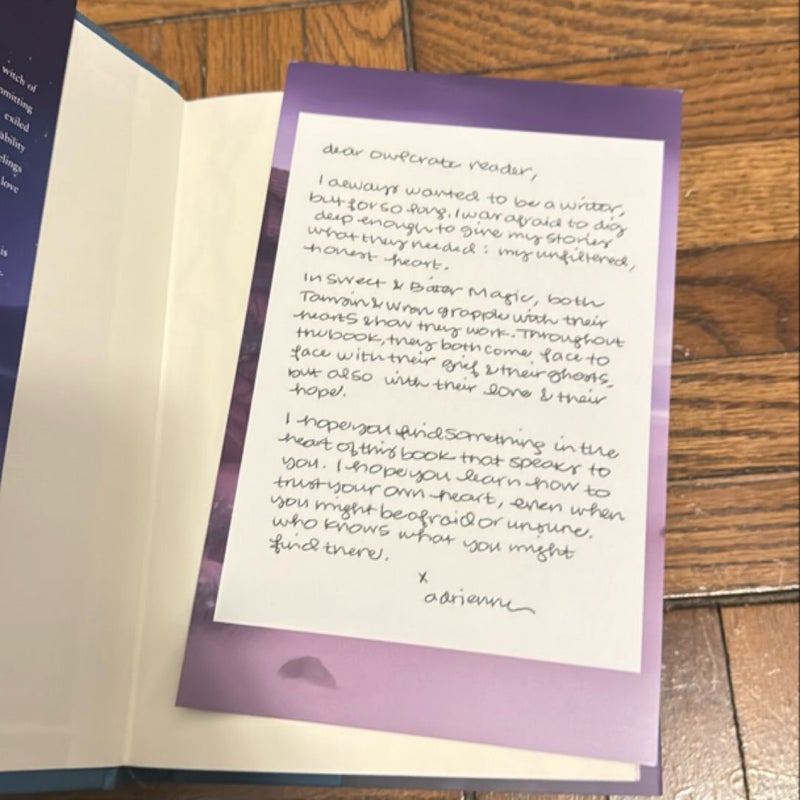 witch of
omitting
exiled
ability
elings
love
is
dear owlcrate reader,
I always wanted to be a writer,
but for so long, I was afraid to dig
deep enough to give my stories
what they needed: my unfiltered,
honest heart.
In Sweet & Bitter Magic, both
Tamsin & Wren grapple with their
hearts & how they work. Throughout
the book, they both come face to
face with their grief & their ghosts,
but also with their love & their
hope.
I hope you find something in the
heart of this book that speaks to
you. I hope you learn how to
trust your own heart, even when
you might be afraid or unsure.
who knows what you might
find there.
x
adrienne